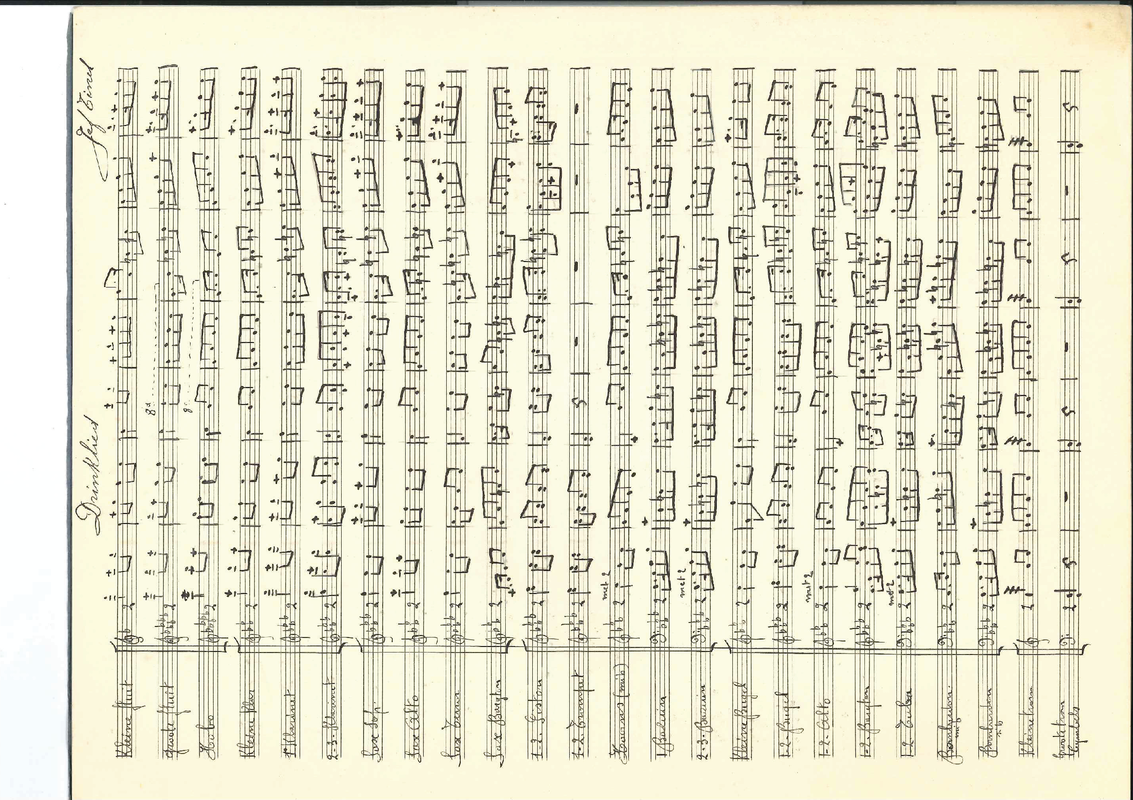 Drinklied
Jef Tinel
Kleine fluit
groote fluit
Hobo
Kleine Klar
1e Klarinet
2-3 Klarinet
Sax Sop.
Sax Alto
Sax Tenor
Sax Baryton
1-2 Piston
1-2 Trompet
Hoorns (mib)
1 Bazuin
2-3 Bazuin
Kleine Bugel
1-2 Bugel
1-2 Alto
1-2 Baryton
1-2 Tuba
Kleine trom
Groote trom
8a
8a
met 2
met 2
met 2
met 2